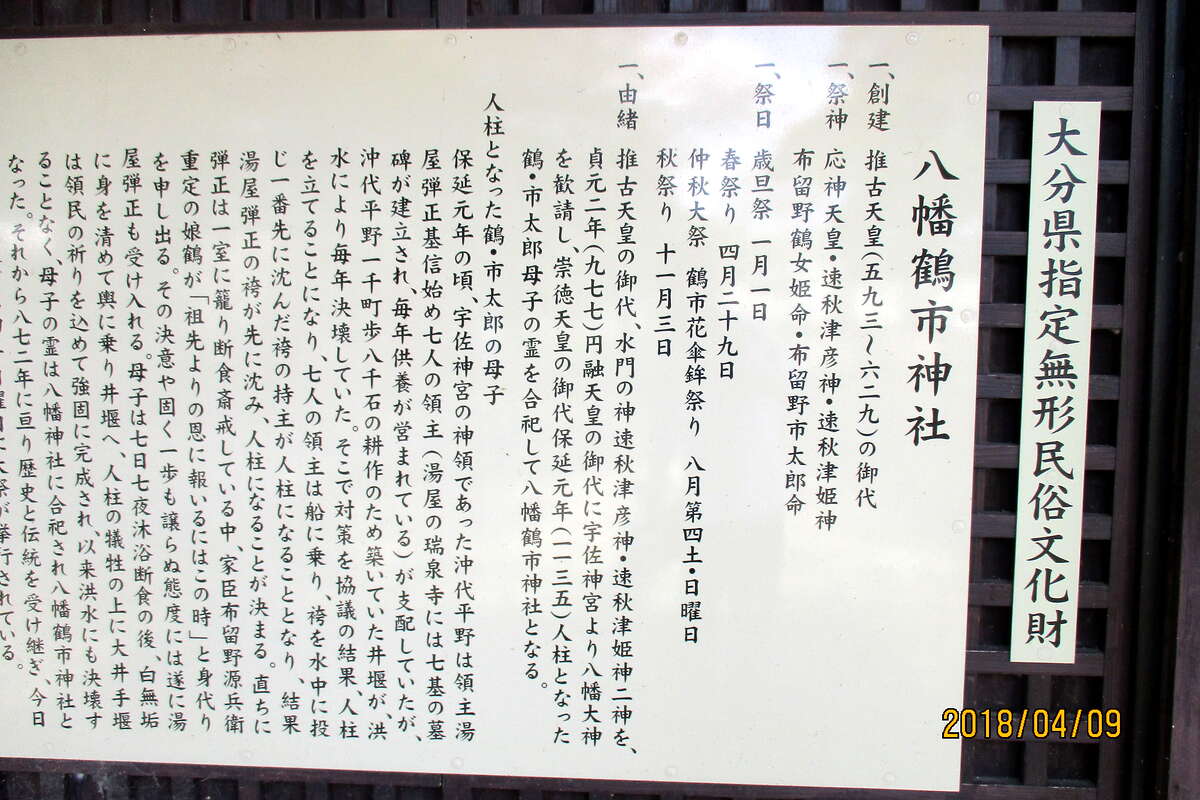 大分県指定無形民俗文化財
八幡鶴市神社
一、創建 推古天皇(五九三～六二九)の御代
一、祭神 応神天皇・速秋津彦神・速秋津姫神
布留野鶴女姫命・布留野市太郎命
一、祭日 歳旦祭 一月一日
春祭り 四月二十九日
仲秋大祭 鶴市花傘鉾祭り 八月第四土・日曜日
秋祭り 十一月三日
一、由緒 推古天皇の御代、水門の神速秋津彦神・速秋津姫神二神を、
貞元二年(九七七)円融天皇の御代に宇佐神宮より八幡大神
を歓請し、崇徳天皇の御代保延元年(一一三五)人柱となった
鶴・市太郎母子の霊を合祀して八幡鶴市神社となる。
人柱となった鶴・市太郎の母子
保延元年の頃、宇佐神宮の神領であった沖代平野は領主湯
屋弾正基信始め七人の領主(湯屋の瑞泉寺には七基の墓
碑が建立され、毎年供養が営まれている)が支配していたが、
沖代平野一千町歩八千石の耕作のため築いていた井堰が、洪
水により毎年決壊していた。そこで対策を協議の結果、人柱
を立てることになり、七人の領主は船に乗り、袴を水中に投
じ一番先に沈んだ袴の持主が人柱になることとなり、結果
湯屋弾正の袴が先に沈み、人柱になることが決まる。直ちに
弾正は一室に籠り断食斎戒している中、家臣布留野源兵衛
重定の娘鶴が「祖先よりの恩に報いるにはこの時」と身代り
を申し出る。その決意や固く一歩も譲らぬ態度には遂に湯
屋弾正も受け入れる。母子は七日七夜沐浴断食の後、白無垢
に身を清めて輿に乗り井堰へ、人柱の犠牲の上に大井手堰
は領民の祈りを込めて強固に完成され、以来洪水にも決壊す
ることなく、母子の霊は八幡神社に合祀され八幡鶴市神社と
なった。それから八七二年に亘り歴史と伝統を受け継ぎ、今日
大祭が挙行されている。
2018/04/09